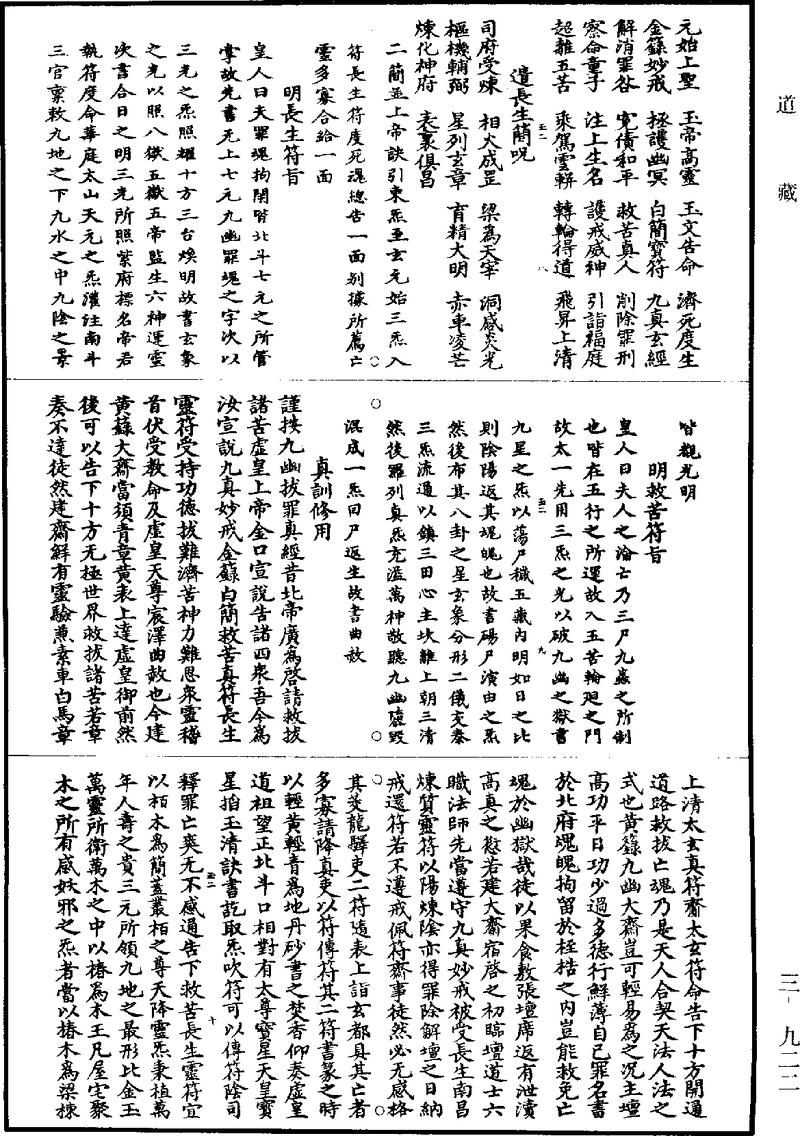 道藏
三-九二二
元始上聖　玉帝高靈　玉文告命　濟死度生
金籙妙戒　拯護幽冥　白簡寶符　九真玄經
解消罪咎　寃債和平　救苦真人　削除罪刑
察命童子　注上生名　護戒威神　引詣福庭
超離五苦　乘駕雲軿　轉輪得道　飛昇上清
遣長生簡呪
司府受煉　相大成罡　梁為天宰　洞感炎光
樞機輔弼　星列玄章　育精大明　赤車凌芒
煉化神府　表裏俱昌
二簡並上帝訣引東炁至玄元始三炁入
符長生符度死魂總告一面別據所薦亡
靈多寡合給一面
明長生符旨
皇人曰夫罪魂拘閉皆北斗七元之所管
掌故先書无上七元九幽罪魂之字次以
三光之炁照耀十方三台煥明故書玄象
之光以照八獄五嶽五帝監生六神運靈
次書合日之明三光所照紫府標名帝君
執符度命華庭太山天元之炁灌注南斗
三官稟敕九地之下九水之中九陰之景
皆覩光明
明救苦符旨
皇人曰夫人之淪亡乃三尸九蟲之所制
也皆在五行之所運故入五苦輪廻之門
故太一先用三炁之光以破九幽之獄書
九星之炁以蕩尸穢五藏內明如日之比
則陰陽返其魂魄也故書磔尸演由之炁
然後布其八卦之星玄象分形二儀交泰
三炁流通以鎮三田心主坎離上朝三清
然後羅列真炁充溢萬神敬聽九幽隳毀
混成一炁回尸返生故書曲赦
真訓修用
謹按九幽拔罪真經昔北帝廣為啓請救拔
諸苦虛皇上帝金口宣說告諸四衆吾今為
汝宣說九真妙戒金籙白簡救苦真符長生
靈符受持功德拔難濟苦神力難思衆靈稽
首伏受教命及虛皇天尊宸澤曲赦也今建
黃籙大齋當須青章黃表上達虛皇御前然
後可以告下十方无極世界救拔諸苦若章
奏不達徒然建齋解有靈驗兼素車白馬章
上清太玄真符齋太玄符命告下十方開通
道路救拔亡魂乃是天人合契天法人法之
式也黃籙九幽大齋豈可輕易為之況主壇
高功平日功少過多德行鮮薄自己罪名書
於北府魂魄拘留於桎梏之內豈能救免亡
魂於幽獄哉徒以果食敷張壇席返有泄瀆
高真之愆若建大齋宿啓之初臨壇道士六
職法師先當遵守九真妙戒被受長生南昌
煉質靈符以陽煉陰亦得罪除解壇之日納
戒還符若不遵戒佩符齋事徒然必无感格
其茭龍驛吏二符隨表上詣玄都具其亡者
多寡請降真吏以符傳符其二符書篆之時
以輕黃輕青為地丹砂書之焚香仰奏虛皇
道祖望正北斗口相對有太尊寶星天皇寶
星掐玉清訣書訖取炁吹符可以傳符陰司
釋罪亡爽无不感通告下救苦長生靈符宜
以栢木為簡蓋叢栢之尊天降靈炁秉植萬
年人壽之貴三元所領九地之最形比金玉
萬靈所衛萬木之中以椿為木王凡屋宅聚
木之所有感妖邪之炁者當以椿木為梁棟